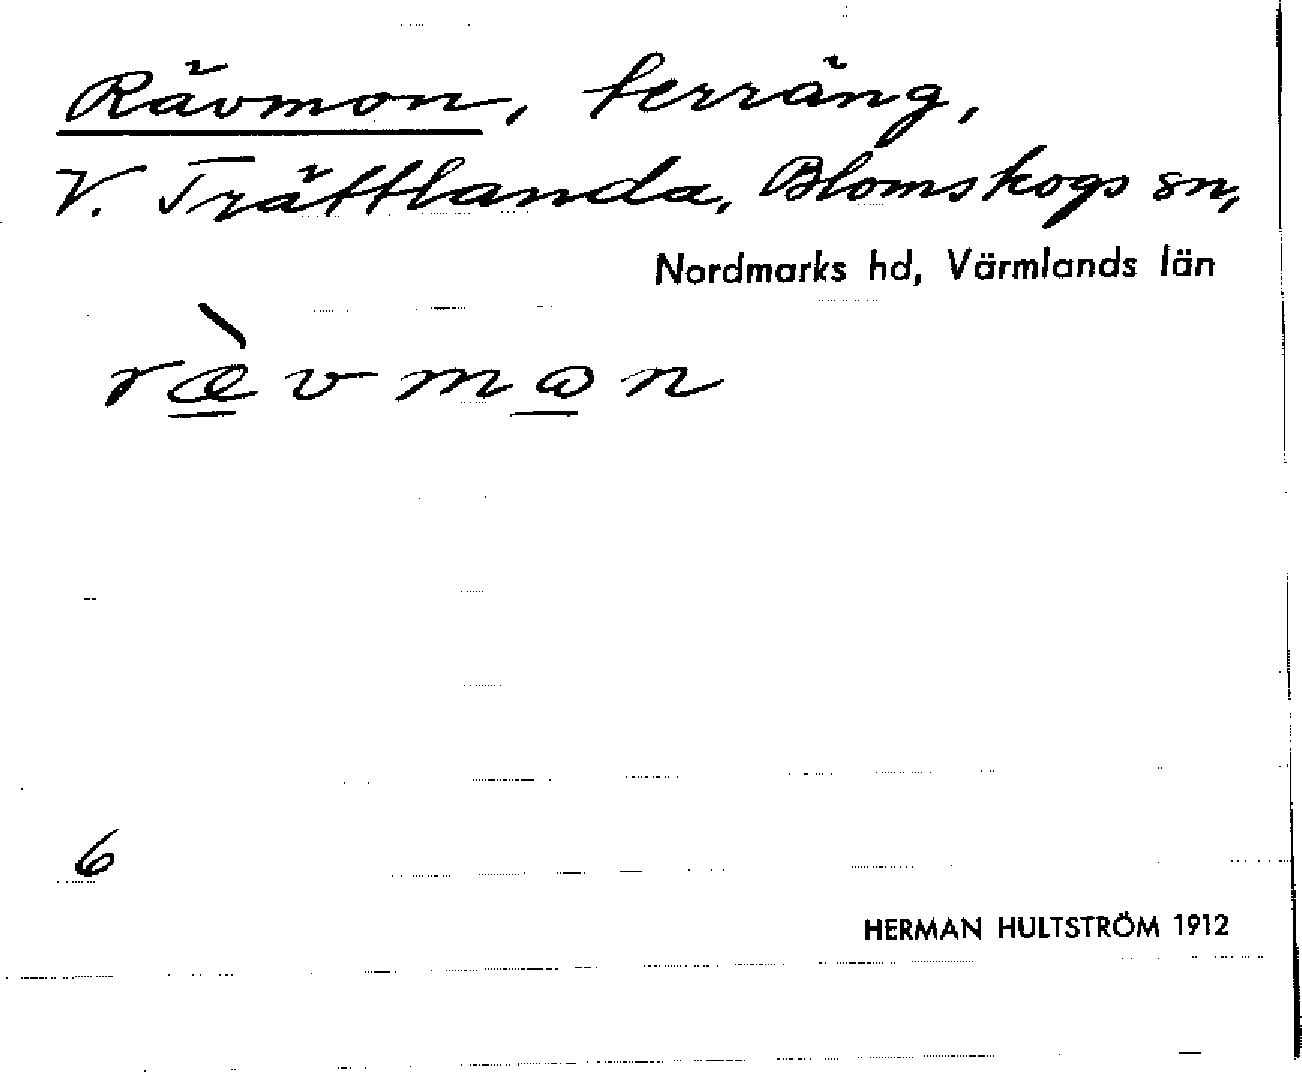 Rävmon, terräng,
V. Trättlanda, Blomskogs sn,
Nordmarks hd, Värmlands län
ræ̀vmɷn
6
HERMAN HULTSTRÖM 1912